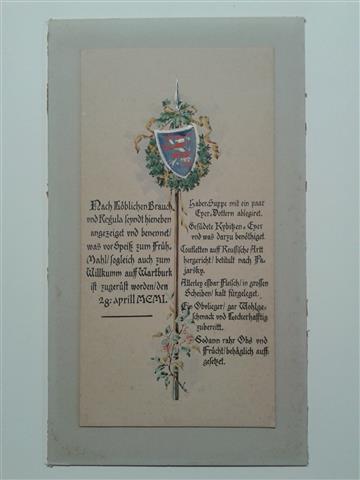 Nach Löblichen Brauch
vnd Regula seyndt hieneben
angezeiget vnd benennet/
was vor Speiß zum Früh,
Mahl/sogleich auch zum
Willkumm auff Wartburk
ist zugerüst worden/den
29: aprill MCMI.
Haber,Suppe mit ein paar
Eyer,Dottern abkegiret.
Gesüdete Kybitzen = Eyer
vnd was darzu benöthiget.
Coutletten auff Reussische Artt
hergericht/ betitult nach Po,
jarsky.
Allerley eßbar Fleisch/in grossen
Scheiben/ kalt fürgeleget.
Ein Obsieger/ gar Wohlge,
schmack vnd Leckerhafftig
zubereitt.
Sodann rahr Obs vnd
Frücht/behäglich auff,
gesetzet.